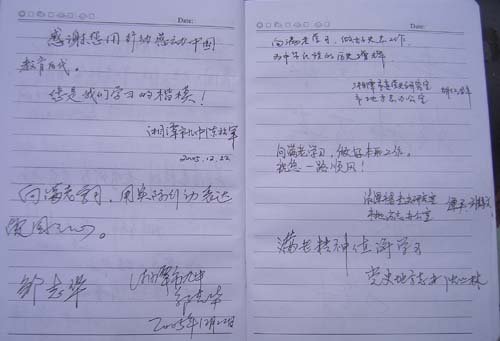 Date:
感谢您用行动感动中国
教育后代。
您是我们学习的楷模！
湘潭市九中陈
2005.12.22
向满老学习，用实际行动表达
爱国之心。
邹志华
湘潭市九中
邹志华
2005年12月22日
Date:
向满老学习，做好史志工作，
为中华民族的历史增辉
湘潭市委党史研究室
市地方志办公室
向满老学习，做好本职工作。
祝您一路顺风！
党史研究室
地方志办公室
满老精神值得学习
党史地方志办